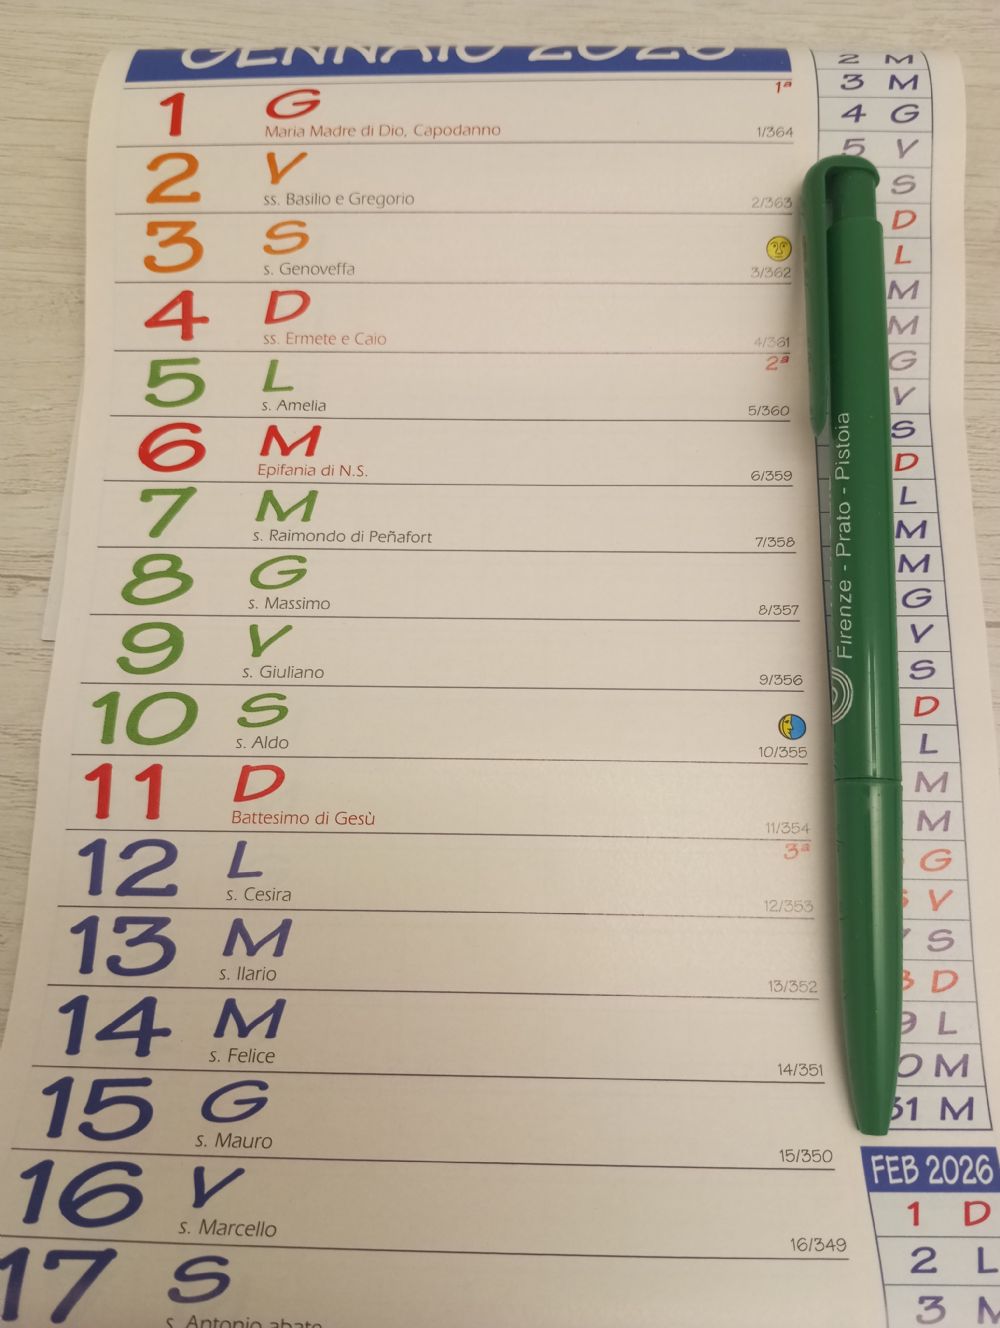 GENNAIO 2026
1 G 1ª
Maria Madre di Dio, Capodanno 1/364
2 V
ss. Basilio e Gregorio 2/363
3 S
s. Genoveffa 3/362
4 D
ss. Ermete e Caio 4/361
5 L 2ª
s. Amelia 5/360
6 M
Epifania di N.S. 6/359
7 M
s. Raimondo di Peñafort 7/358
8 G
s. Massimo 8/357
9 V
s. Giuliano 9/356
10 S
s. Aldo 10/355
11 D
Battesimo di Gesù 11/354
12 L 3ª
s. Cesira 12/353
13 M
s. Ilario 13/352
14 M
s. Felice 14/351
15 G
s. Mauro 15/350
16 V
s. Marcello 16/349
17 S
s. Antonio abate
2 M
3 M
4 G
5 V
S
D
L
M
M
G
V
S
D
L
M
M
G
V
S
D
L
M
M
G
V
S
D
L
M
31 M
FEB 2026
1 D
2 L
3 M
Firenze - Prato - Pistoia